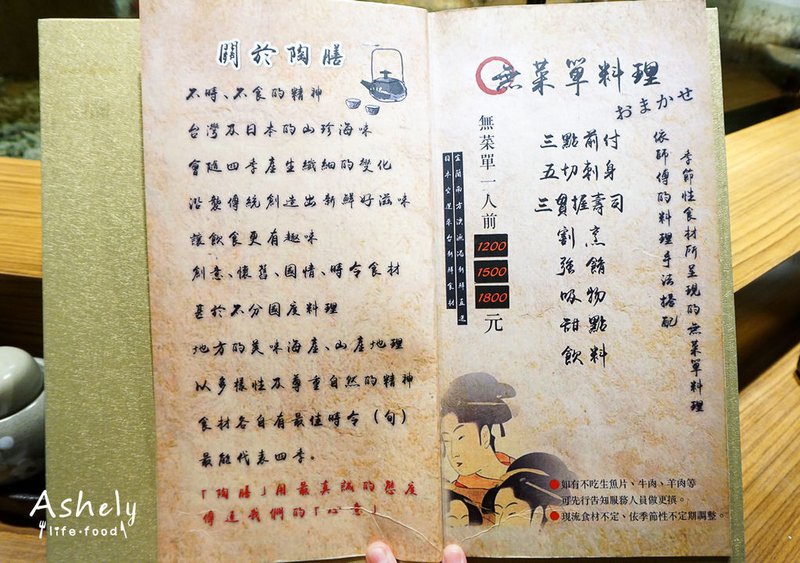 關於陶膳
不時、不食的精神
台灣及日本的山珍海味
會隨四季產生纖細的變化
沿襲傳統創造出新鮮好滋味
讓飲食更有趣味
創意、懷舊、國情、時令食材
甚於不分國度料理
地方的美味海產、山產地理
以多樣性及尊重自然的精神
食材各自有最佳時令（旬）
最能代表四季。
「陶膳」用最真誠的態度
傳達我們的「心意」
無菜單料理
おまかせ
季節性食材所呈現的無菜單料理
依師傅的料理手法搭配
三點前付
五切刺身
三貫握壽司
割烹
強餚
吸物
甜點
飲料
無菜單一人前
1200
1500
1800
元
宜蘭南方澳漁港新鮮直送
日本空運來台新鮮食材
如有不吃生魚片、牛肉、羊肉等
可先行告知服務人員做更換。
現流食材不定、依季節性不定期調整。
Ashely
life·food